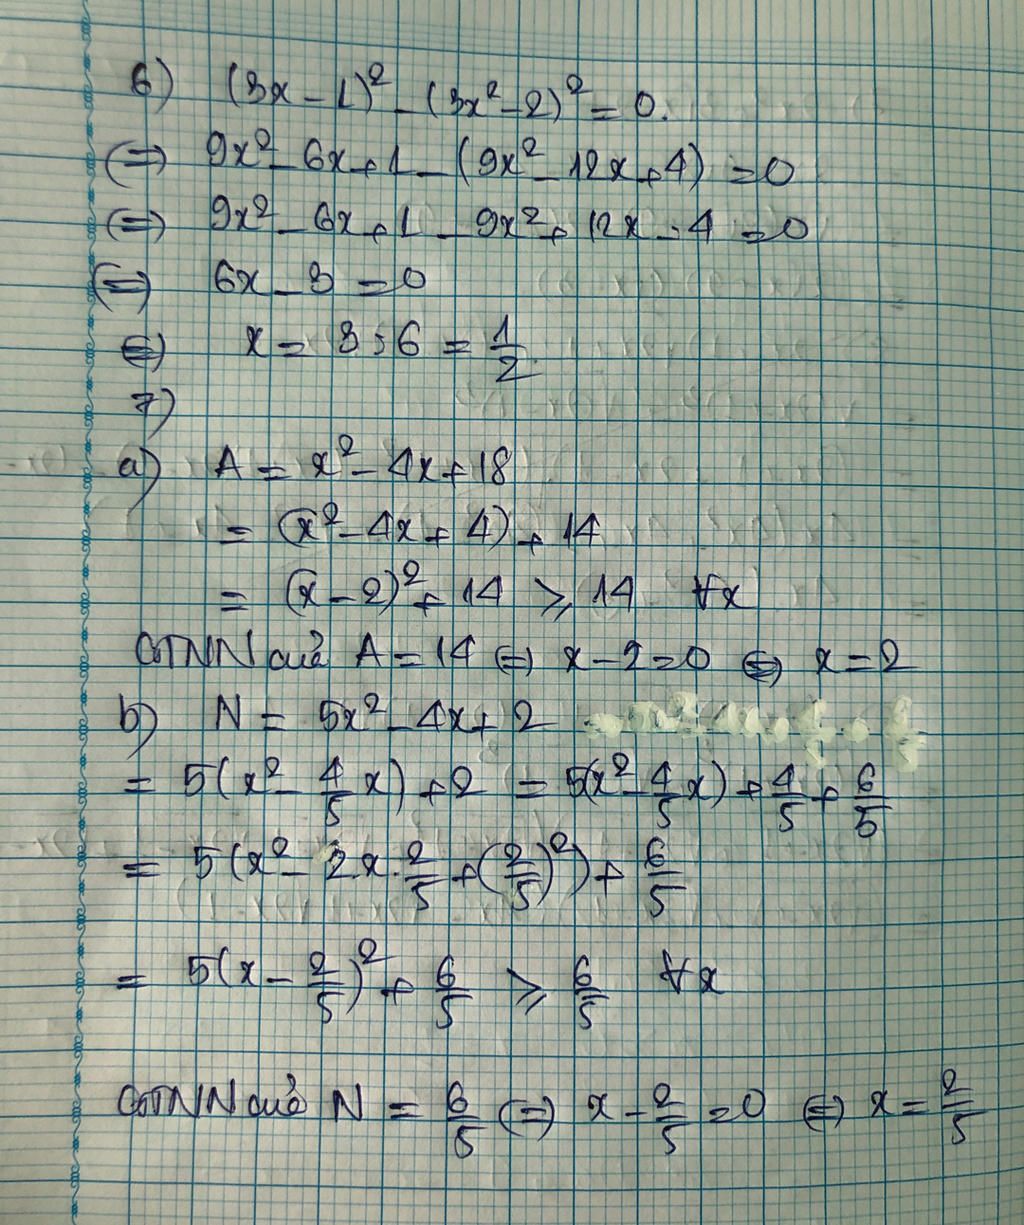 6) (3x - 1)² - (3x² - 2)² = 0.
(=) 9x² - 6x + 1 - (9x² - 12x + 4) = 0
(=) 9x² - 6x + 1 - 9x² + 12x - 4 = 0
(=) 6x - 3 = 0
(=) x = 3 : 6 = 1/2
7)
a) A = x² - 4x + 18
= (x² - 4x + 4) + 14
= (x - 2)² + 14 ⩾ 14 ∀x
GTNN của A = 14 (=) x - 2 = 0 (=) x = 2
b) N = 5x² - 4x + 2
= 5(x² - 4/5 x) + 2 = 5(x² - 4/5 x) + 4/5 + 6/5
= 5(x² - 2x . 2/5 + (2/5)²) + 6/5
= 5(x - 2/5)² + 6/5 ⩾ 6/5 ∀x
GTNN của N = 6/5 (=) x - 2/5 = 0 (=) x = 2/5